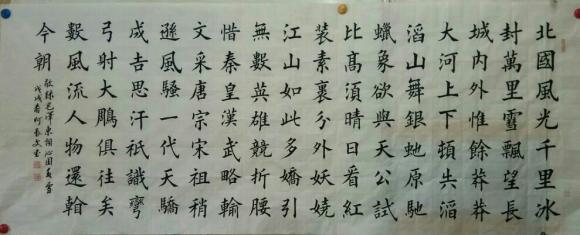 北國風光千里冰
封萬里雪飄望長
城内外惟餘莽莽
大河上下頓失滔
滔山舞銀蛇原馳
蠟象欲與天公試
比髙須晴日看紅
裝素裹分外妖嬈
江山如此多嬌引
無數英雄競折腰
惜秦皇漢武略輸
文采唐宗宋祖稍
遜風騷一代天驕
成吉思汗祇識彎
弓射大鵰俱往矣
數風流人物還看
今朝
敬錄毛澤東詞沁園春雪
戊戌春